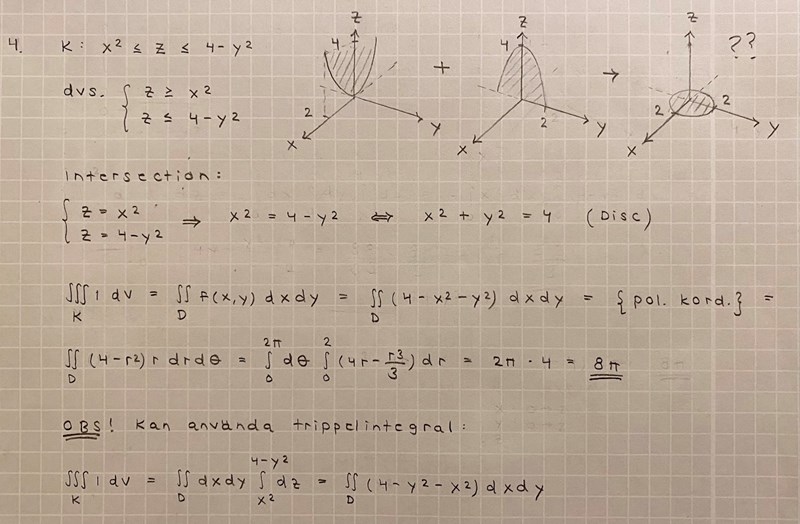 4. K: x² ≤ z ≤ 4-y²
z 4 2 x y + z 4 2 x y → z 2 2 x y ??
dvs. { z ≥ x²
z ≤ 4-y²
Intersection:
{ z = x²
z = 4-y² ⇒ x² = 4-y² ⇔ x² + y² = 4 (Disc)
∭_K 1 dv = ∬_D f(x,y) dxdy = ∬_D (4-x²-y²) dxdy = {pol. kord.} =
∬_D (4-r²) r drdθ = ∫_0^{2π} dθ ∫_0^2 (4r - r³/3) dr = 2π · 4 = 8π
OBS! Kan använda trippelintegral:
∭_K 1 dv = ∬_D dxdy ∫_{x²}^{4-y²} dz = ∬_D (4-y²-x²) dxdy